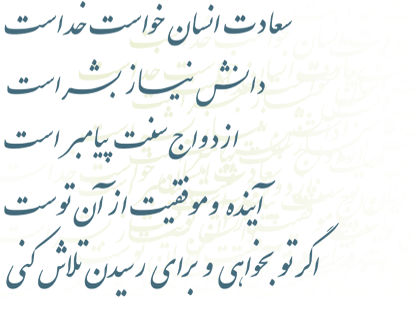 سعادت انسان خواست خداست
دانش نیاز بشر است
ازدواج سنت پیامبر است
آینده وموفقیت از آن توست
اگر تو بخواهی و برای رسیدن تلاش کنی